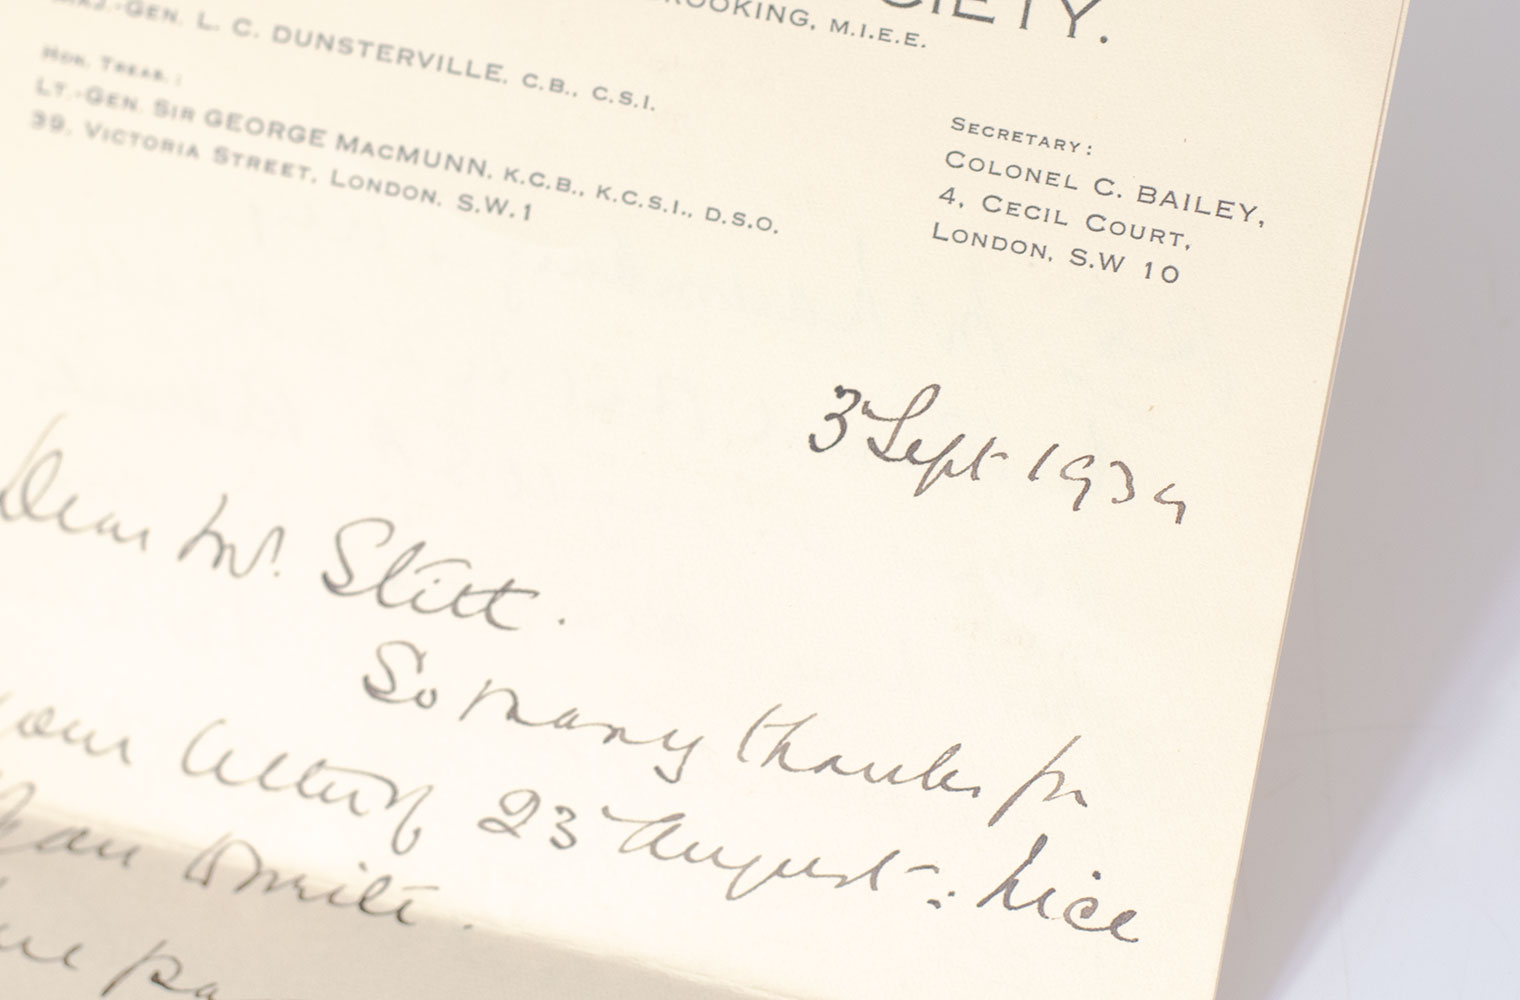 CIETY.
ROOKING, M.I.E.E.
MAJ.-GEN. L. C. DUNSTERVILLE, C.B., C.S.I.
HON. TREAS.:
LT.-GEN. SIR GEORGE MACMUNN, K.C.B., K.C.S.I., D.S.O.
39, VICTORIA STREET, LONDON, S.W.1
SECRETARY:
COLONEL C. BAILEY,
4, CECIL COURT,
LONDON, S.W 10
3 Sept 1934
Dear Mr. Stitt.
So many thanks for
your letter of 23 August: nice